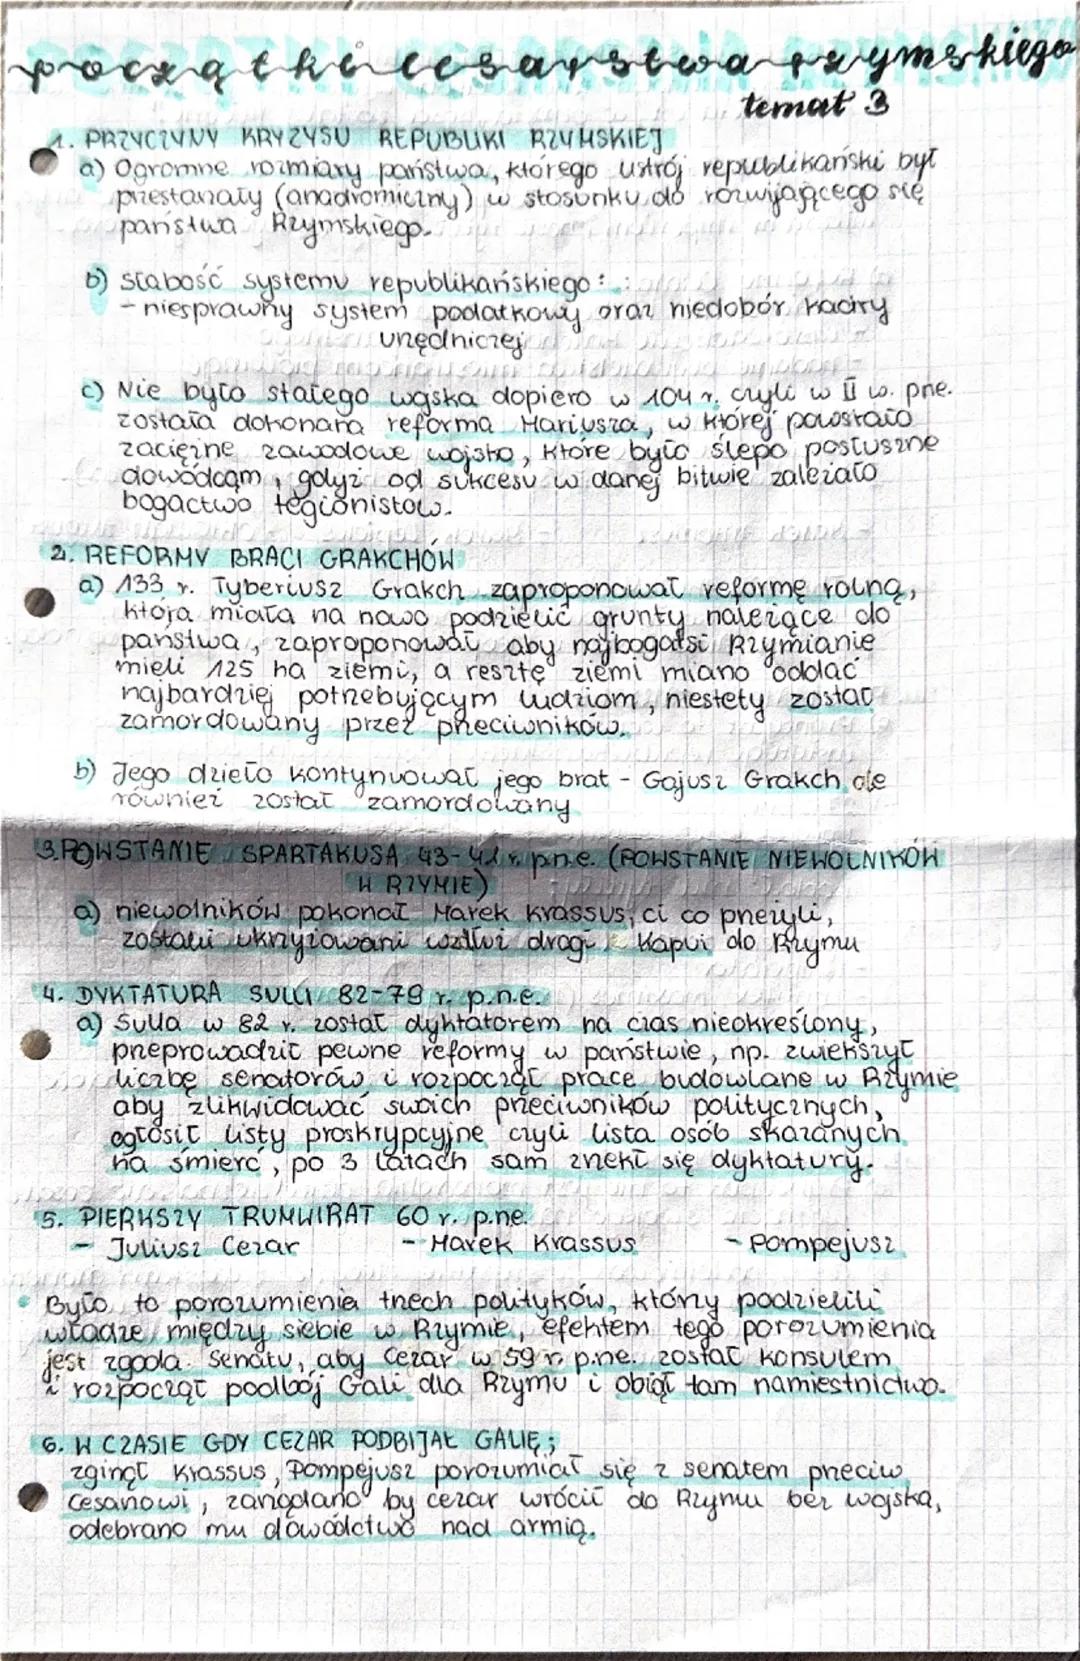 początki cesarstwa rzymskiego
temat 3
1. PRZYCZYNY KRYZYSU REPUBLIKI RZYMSKIEJ
a) Ogromne rozmiary państwa, którego ustrój republikański był
przestarzały (anadromiczny) w stosunku do rozwijającego się
państwa Rzymskiego.
b) słabość systemu republikańskiego:
- niesprawny system podatkowy oraz niedobór kadry
urzędniczej
c) Nie było stałego wojska dopiero w 104 r. czyli w II w. pne.
została dokonana reforma Mariusza, w której powstało
zaciężne zawodowe wojsko, które było ślepo posłuszne
dowódcom, gdyż od sukcesu w danej bitwie zależało
bogactwo legionistów.
2. REFORMY BRACI GRAKCHÓW
a) 133 r. Tyberiusz Grakch zaproponował reformę rolną,
która miała na nowo podzielić grunty należące do
państwa, zaproponował aby najbogatsi Rzymianie
mieli 125 ha ziemi, a resztę ziemi miano oddać
najbardziej potrzebującym ludziom, niestety został
zamordowany przez przeciwników.
b) Jego dzieło kontynuował jego brat - Gajusz Grakch ale
również został zamordowany
3. POWSTANIE SPARTAKUSA p.n.e. (POWSTANIE NIEWOLNIKÓW
W RZYMIE)
a) niewolników pokonał Marek Krassus, ci co przeżyli,
zostali ukrzyżowani wzdłuż drogi Kapui do Rzymu
4. DYKTATURA SULLI 82-79 r. p.n.e.
a) Sulla w 82 r. został dyktatorem na czas nieokreślony,
przeprowadził pewne reformy w państwie, np. zwiększył
liczbę senatorów i rozpoczął prace budowlane w Rzymie
aby zlikwidować swoich przeciwników politycznych,
ogłosił listy proskrypcyjne czyli lista osób skazanych
na śmierć, po 3 latach sam zrzekł się dyktatury.
5. PIERWSZY TRUMWIRAT 60 r. p.ne.
- Juliusz Cezar - Marek Krassus - Pompejusz
Było to porozumienia trzech polityków, którzy podzielili
władze między siebie w Rzymie, efektem tego porozumienia
jest zgoda Senatu, aby Cezar w 59 r. p.ne. został konsulem
i rozpoczął podbój Gali dla Rzymu i objął tam namiestnictwo.
6. W CZASIE GDY CEZAR PODBIJAŁ GALIĘ;
zginął Krassus, Pompejusz porozumiał się z senatem przeciw
Cesarzowi, zarządano by cezar wrócił do Rzymu bez wojska,
odebrano mu dowództwo nad armią.